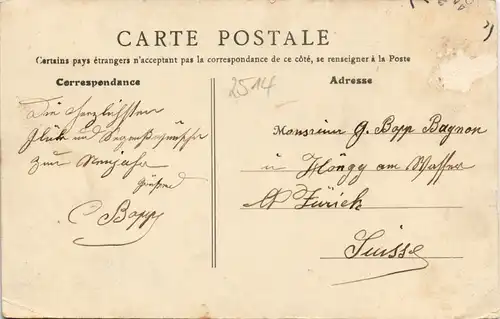 CARTE POSTALE
Certains pays étrangers n'acceptant pas la correspondance de ce côté, se renseigner à la Poste
Correspondance
Adresse
2514
Die herzlichsten
Glück und Segenswünsche
zum Neujahr
C Bopp
Monsieur G. Bopp Bagnon
Höngg am Wasser
Zürich
Suisse